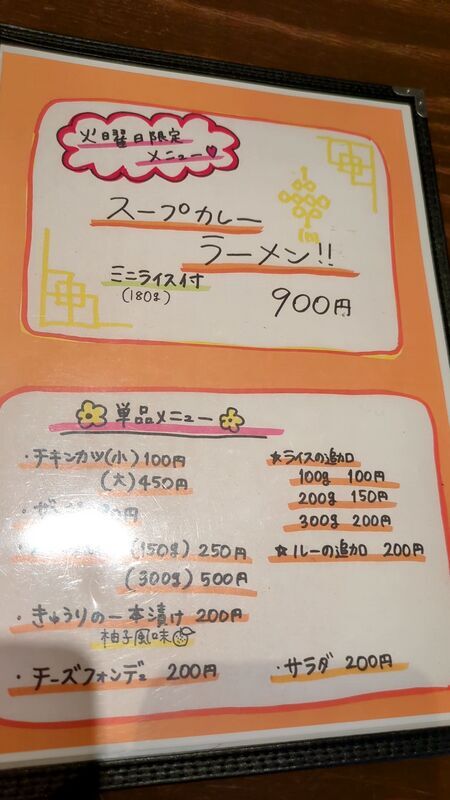 火曜日限定
メニュー♥
スープカレー
ラーメン!!
ミニライス付
(180g)
900円
単品メニュー
・チキンカツ(小)100円
(大)450円
(150g)250円
(300g)500円
・きゅうりの一本漬け 200円
柚子風味
・チーズフォンデュ 200円
☆ライスの追加
100g 100円
200g 150円
300g 200円
☆ルーの追加 200円
・サラダ 200円